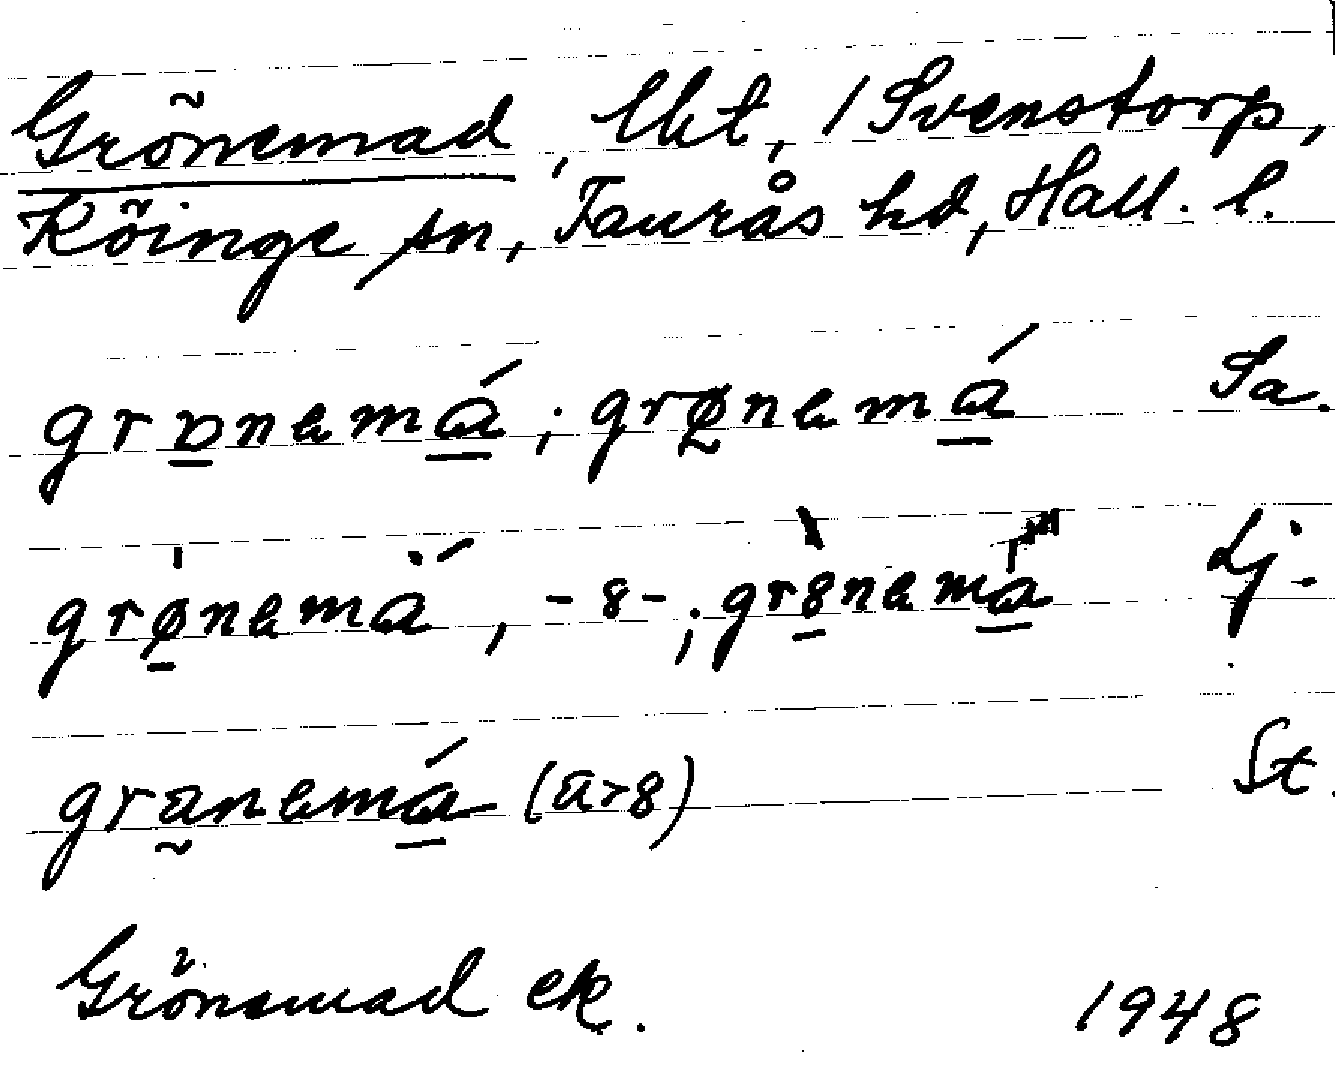 Grönemad, lht, 1 Svenstorp,
Köinge sn, Faurås hd, Hall. l.
grønemá; grønemá Sa.
grønemä́, -8-; gr8nemá Lj.
granemá (a>8) St.
Grönemad ek. 1948